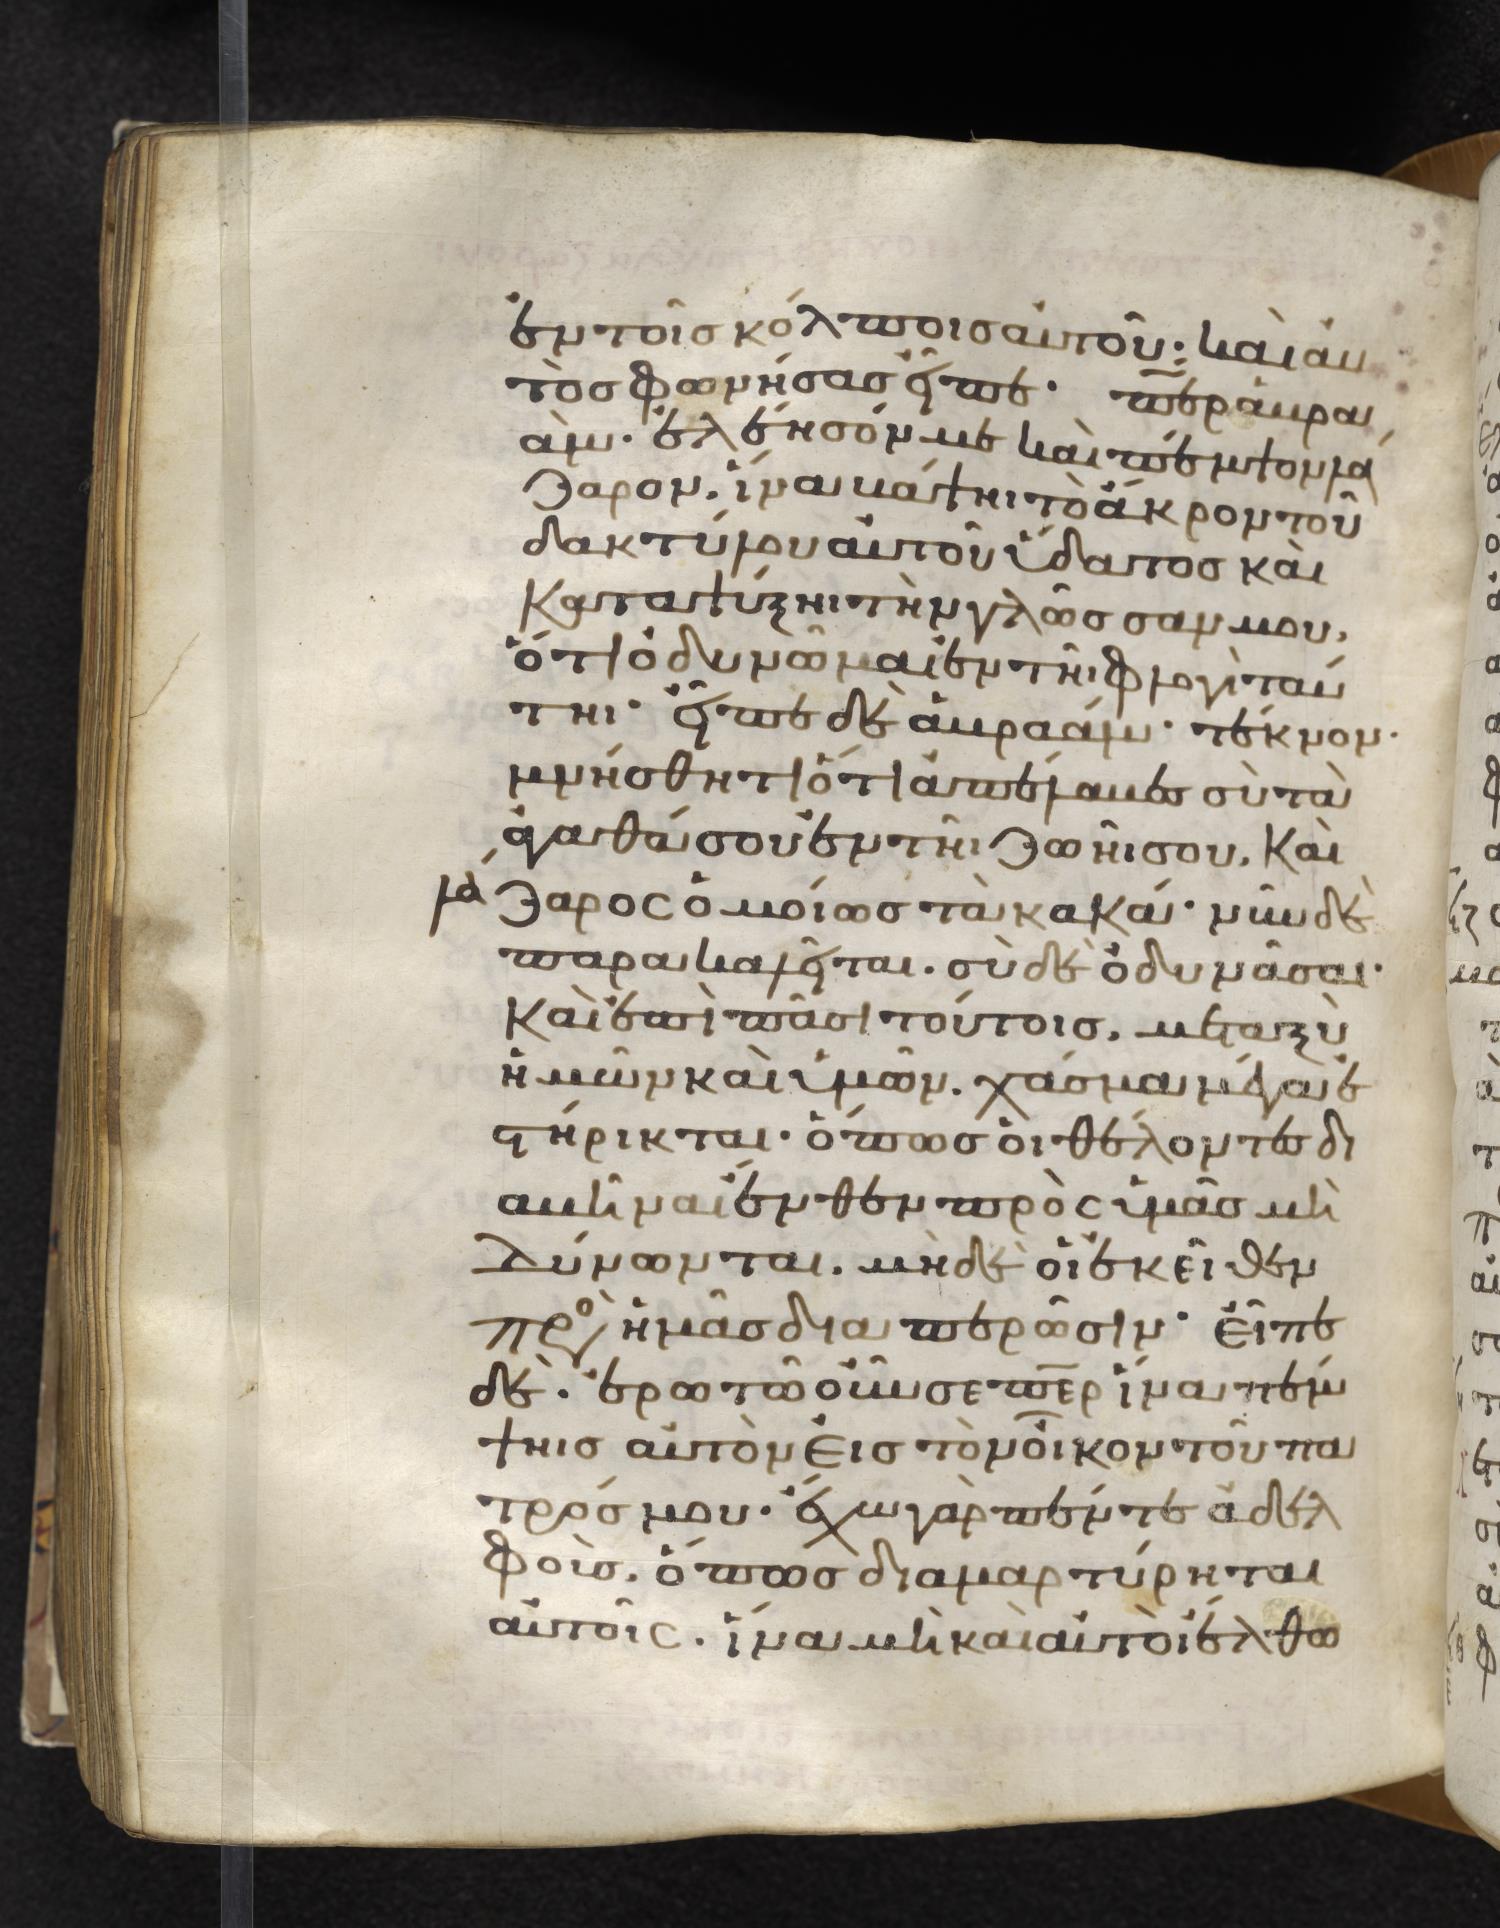 ἐν τοῖς κόλποις αὐτοῦ· καὶ αὐ
τὸς φωνήσας εἶπε· π̅ε̅ρ ἀβρα
ὰμ· ἐλέησόν με καὶ πέμψον λά
ζαρον, ἵνα βάψηι τὸ ἄκρον τοῦ
δακτύλου αὐτοῦ ὕδατος καὶ
καταψύξηι τὴν γλῶσσαν μου,
ὅτι ὀδυνῶμαι ἐν τῆι φλογὶ ταύ
τηι· εἶπε δὲ ἀβραάμ· τέκνον·
μνήσθητι ὅτι ἀπέλαβες σὺ τὰ
ἀγαθά σου ἐν τῆι ζωῆι σου, καὶ
λά ζαρος ὁμοίως τὰ κακά· νῦν δὲ
παρακαλεῖται. σὺ δὲ ὀδυνᾶσαι·
καὶ ἐπὶ πᾶσι τούτοις, μεταξὺ
ἡμῶν καὶ ὑμῶν. χάσμα μέγα ἐ
στήρικται· ὅπως οἱ θέλοντες δι
αβῆναι ἔνθεν πρὸς ὑμᾶς μὴ
δύνωνται. μὴ δὲ οἱ ἐκεῖθεν
πρὸ ἡμᾶς διαπερῶσιν· εἶπε
δὲ. ἐρωτῶ οὖν σε π̅ε̅ρ ἵνα πέμ
ψηις αὐτὸν εἰς τὸν οἶκον τοῦ πα
τρός μου· ἔχω γὰρ πέντε ἀδελ
φοὺς, ὅπως διαμαρτύρηται
αὐτοῖς. ἵνα μὴ καὶ αὐτοὶ ἔλθω